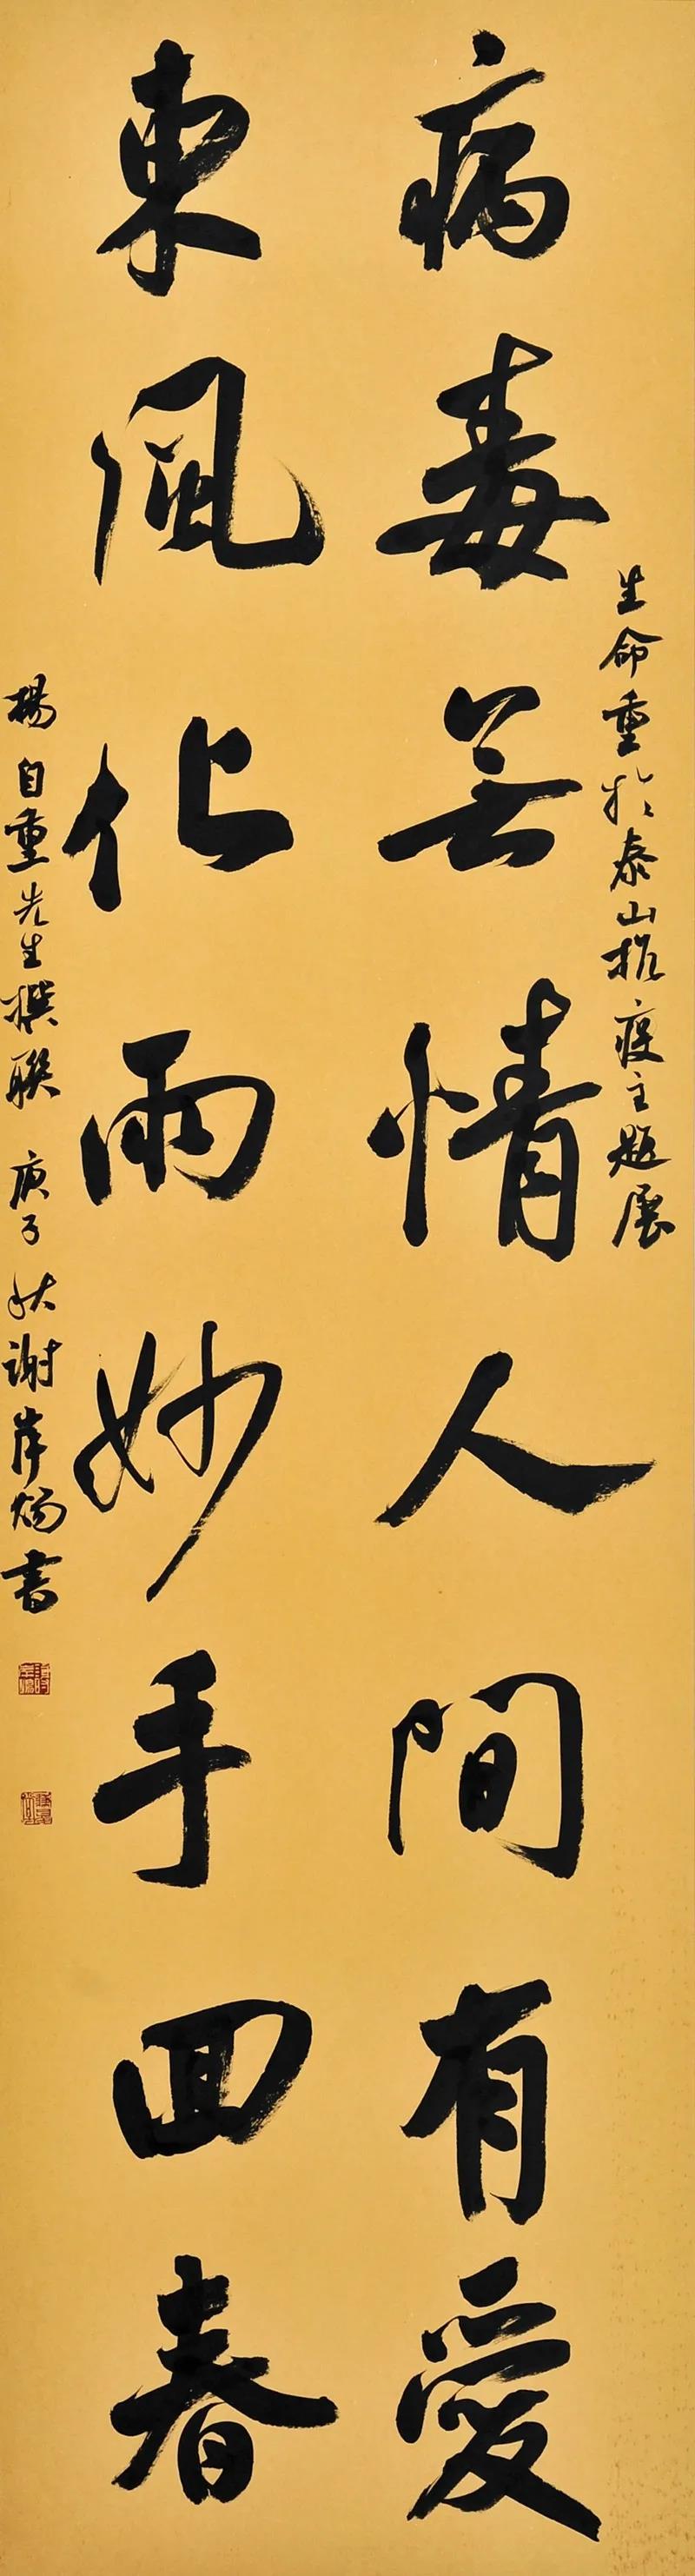 生命重於泰山抗疫主題展
病毒无情人间有愛
東風化雨妙手回春
楊自重先生撰聯 庚子秋謝岸煬書